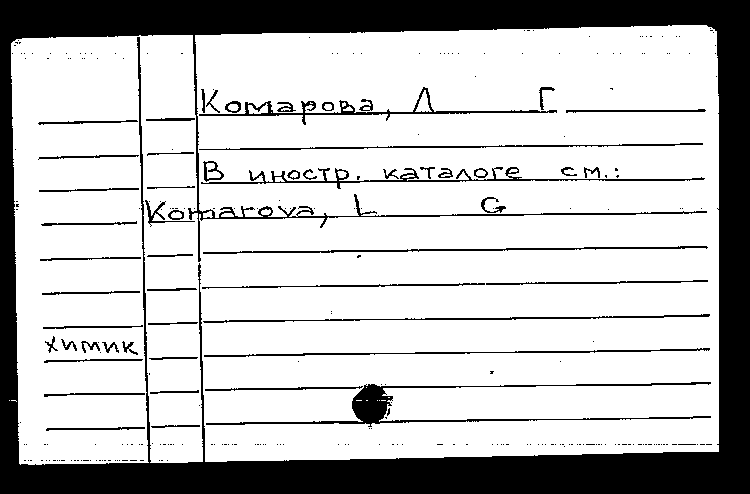 Комарова, Л Г
В иностр. каталоге см.:
Komarova, L G
химик